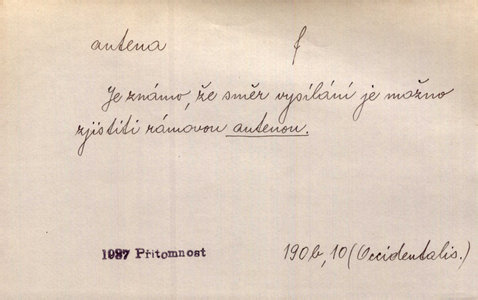 antena f
Je známo, že směr vysílání je možno
zjistiti rámovou antenou.
1937 Přítomnost 190b, 10 (Occidentalis.)